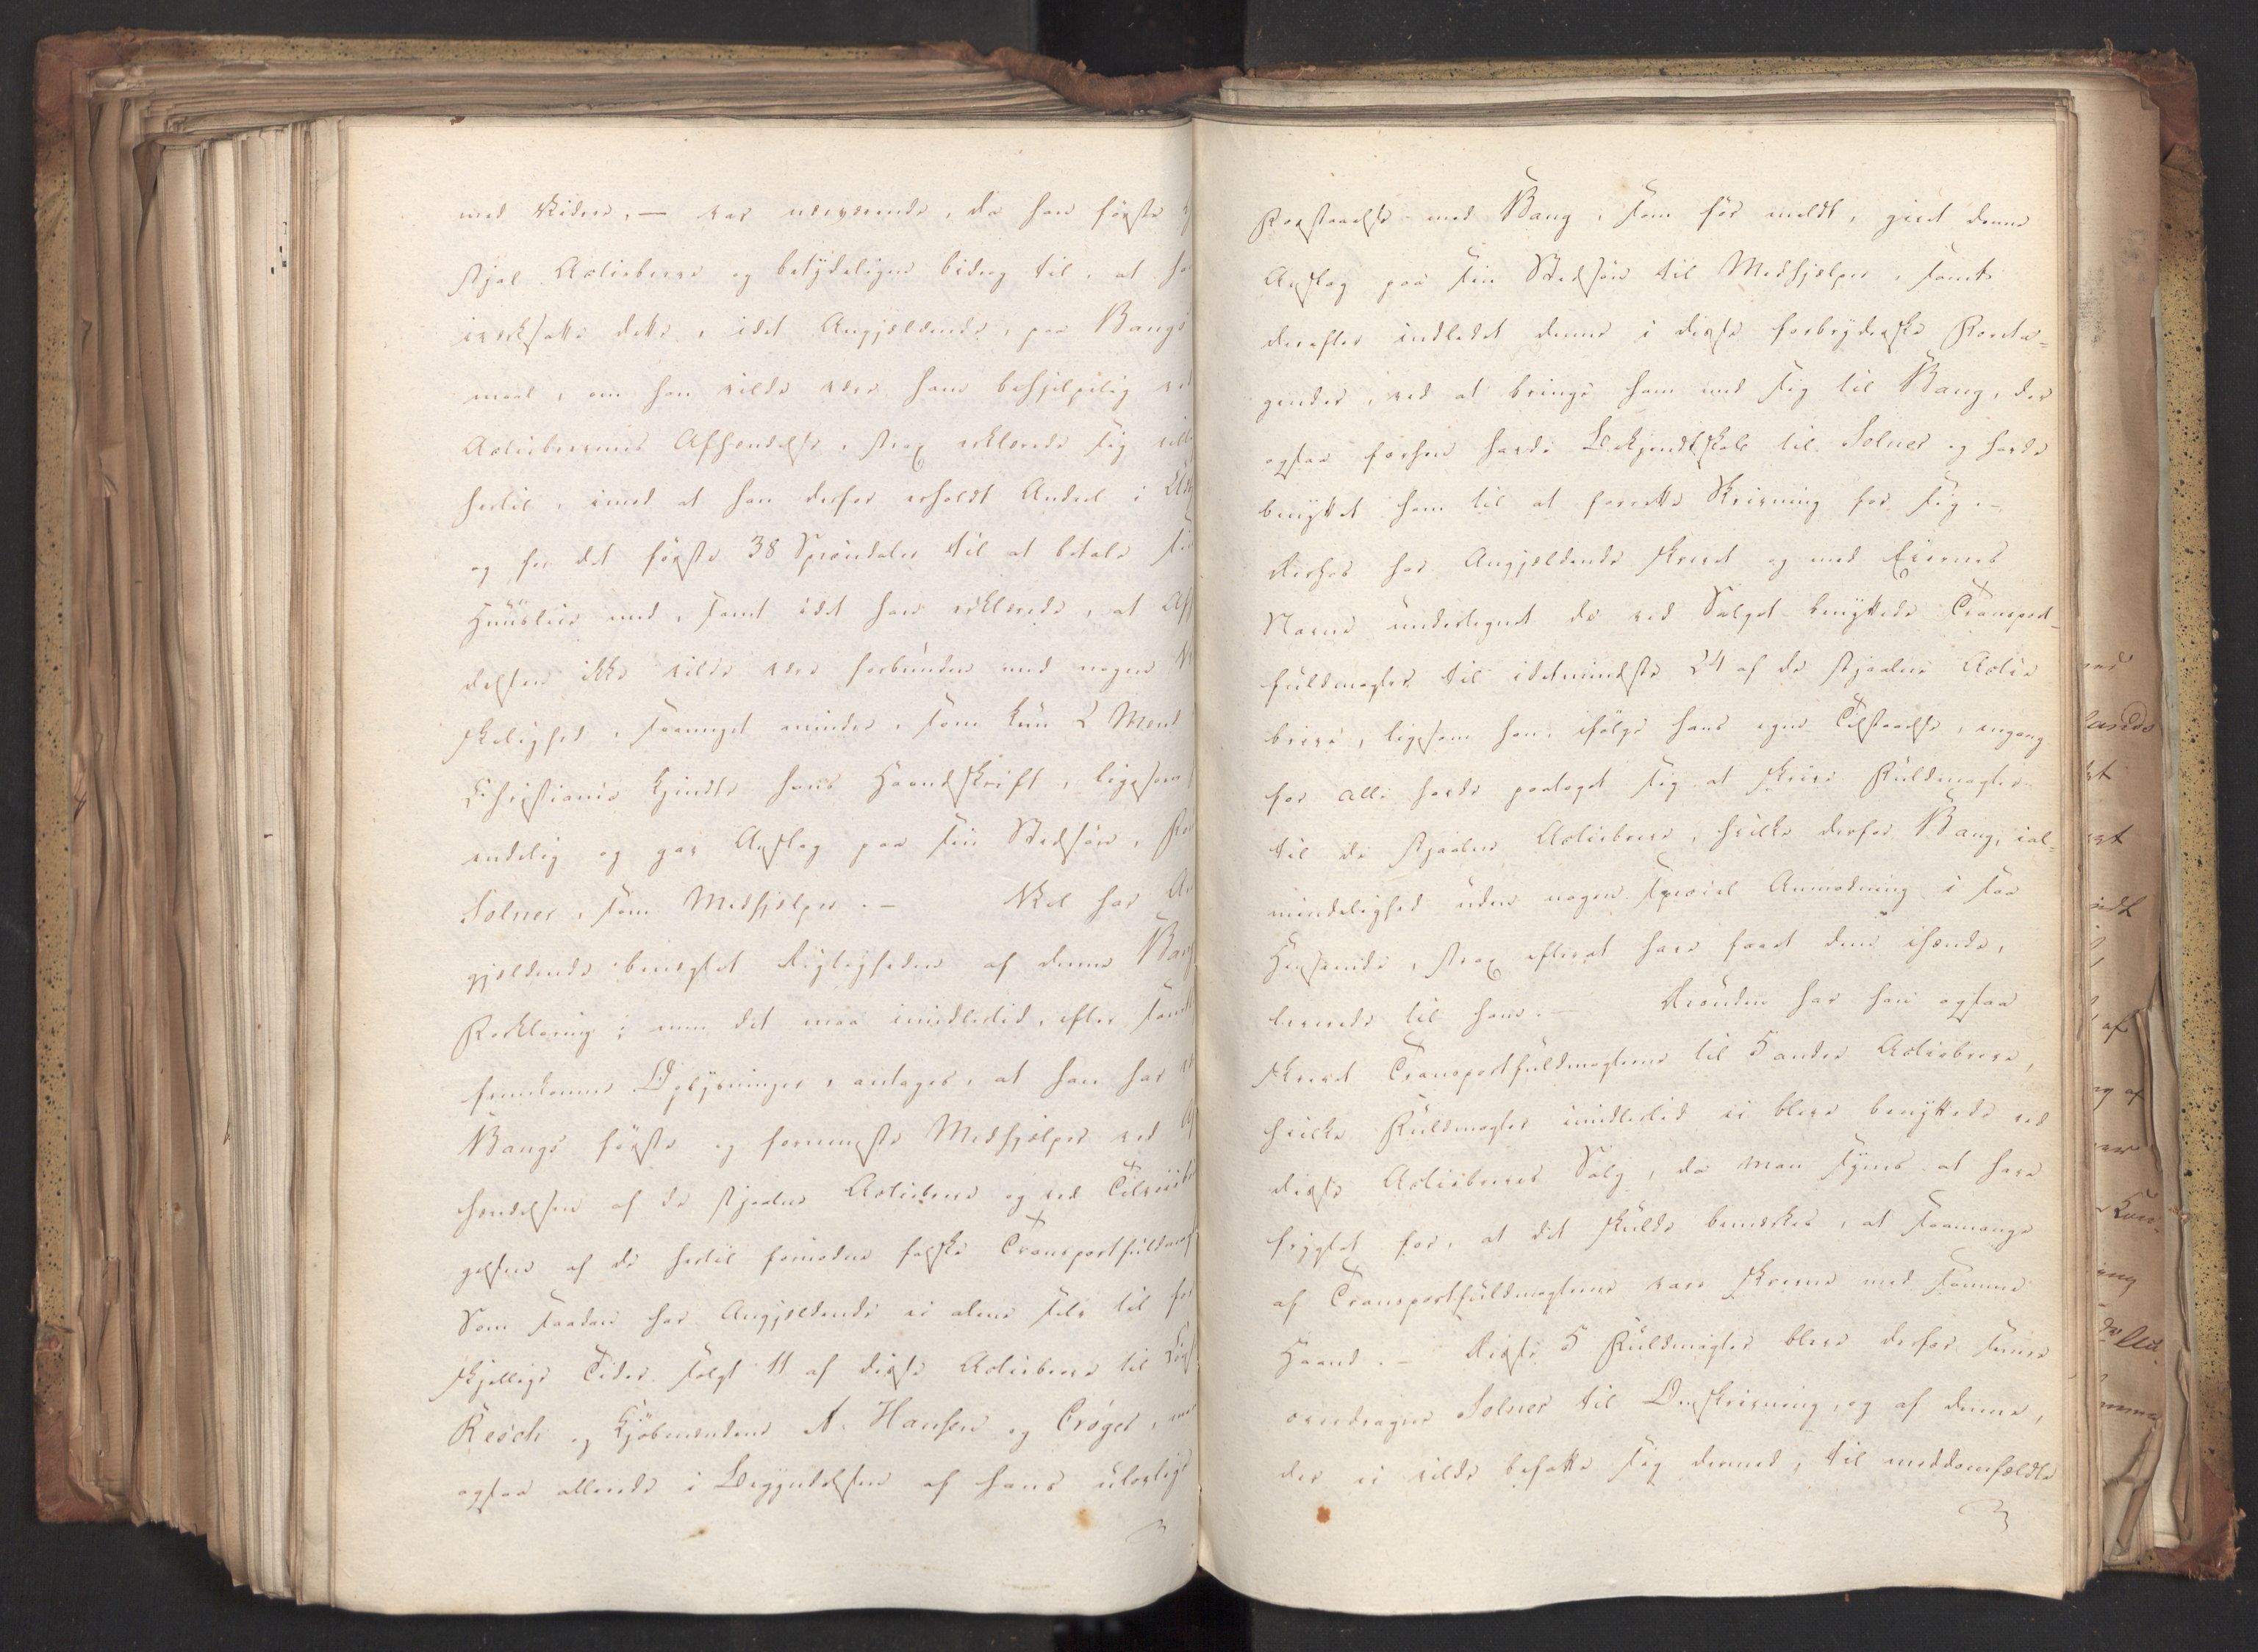 med Viden, — var nærværende, da han første
stjal Actiebreve og betydeligen bidrog til, at han
iverksatte dette, idet Angjældende, paa Bangs
maal, om han vilde være ham behjelpelig ved
Actiebrevenes Afhændelse, strax erklærede sig villig
hertil, imod at han derfor erholdt Andeel i
og for det første 38 Speciesdaler til at betale sin
Huusleie med, samt idet han erklærede, at Af=
delsen ikke vilde være forbunden med nogen Van
skelighed, saameget mindre, som kun 2 Mænd i
Christiania kjendte hans Haandskrift, ligesom
endelig og gav Anslag paa sin Stedsøn,
Solner, som Medhjelper. — Vel har An
gjældende benegtet Rigtigheden af denne Bangs
Forklaring; men det maa imidlertid, efter samtlige
fremkomne Oplysninger, antages, at han har været
Bangs første og fornemste Medhjelper ved Af
hændelsen af de stjaalne Actiebreve og ved Tilveiebrin
gelsen af de hertil fornødne falske Transportfuldmagter
Som saadan har Angjældende ei alene selv til for
skjellige Tider solgt 11 af disse Actiebreve til
Reusch og Kjøbmændene A. Hansen og Crøger, men
ogsaa allerede i Begyndelsen af hans ulovlige
Forstaaelse med Bang, som før meldt, givet denne
Anslag paa sin Stedsøn til Medhjelper, samt
derefter indledet denne i disse forbryderske Foreta=
gender, ved at bringe ham med sig til Bang, der
ogsaa forhen havde Bekjendtskab til Solner og havde
benyttet ham til at forrette Skrivning for sig. —
Derhos har Angjældende skrevet og med Eiernes
Navne undertegnet de ved Salget benyttede Transport=
fuldmagter til idetmindste 24 af de stjaalne Actie
breve, ligesom han, ifølge hans egen Tilstaaelse, engang
for alle havde paataget sig at skrive Fuldmagter
til de stjaalne Actiebreve, hvilke derfor Bang, ial=
mindelighed uden nogen special Anmodning i saa
Henseende, strax efterat have faaet dem ihænde,
leverede til ham. — Desuden har han ogsaa
skrevet Transportfuldmagterne til 5 andre Actiebreve,
hvilke Fuldmagter imidlertid ei bleve benyttede ved
disse Actiebreves Salg, da man synes at have
frygtet for, at det skulde bemerkes, at saamange
af Transportfuldmagterne vare skrevne med samme
Haand. — Disse 5 Fuldmagter bleve derfor senere
overdragne Solner til Omskrivning, og af denne,
der ei vilde befatte sig dermed, til meddomfældte